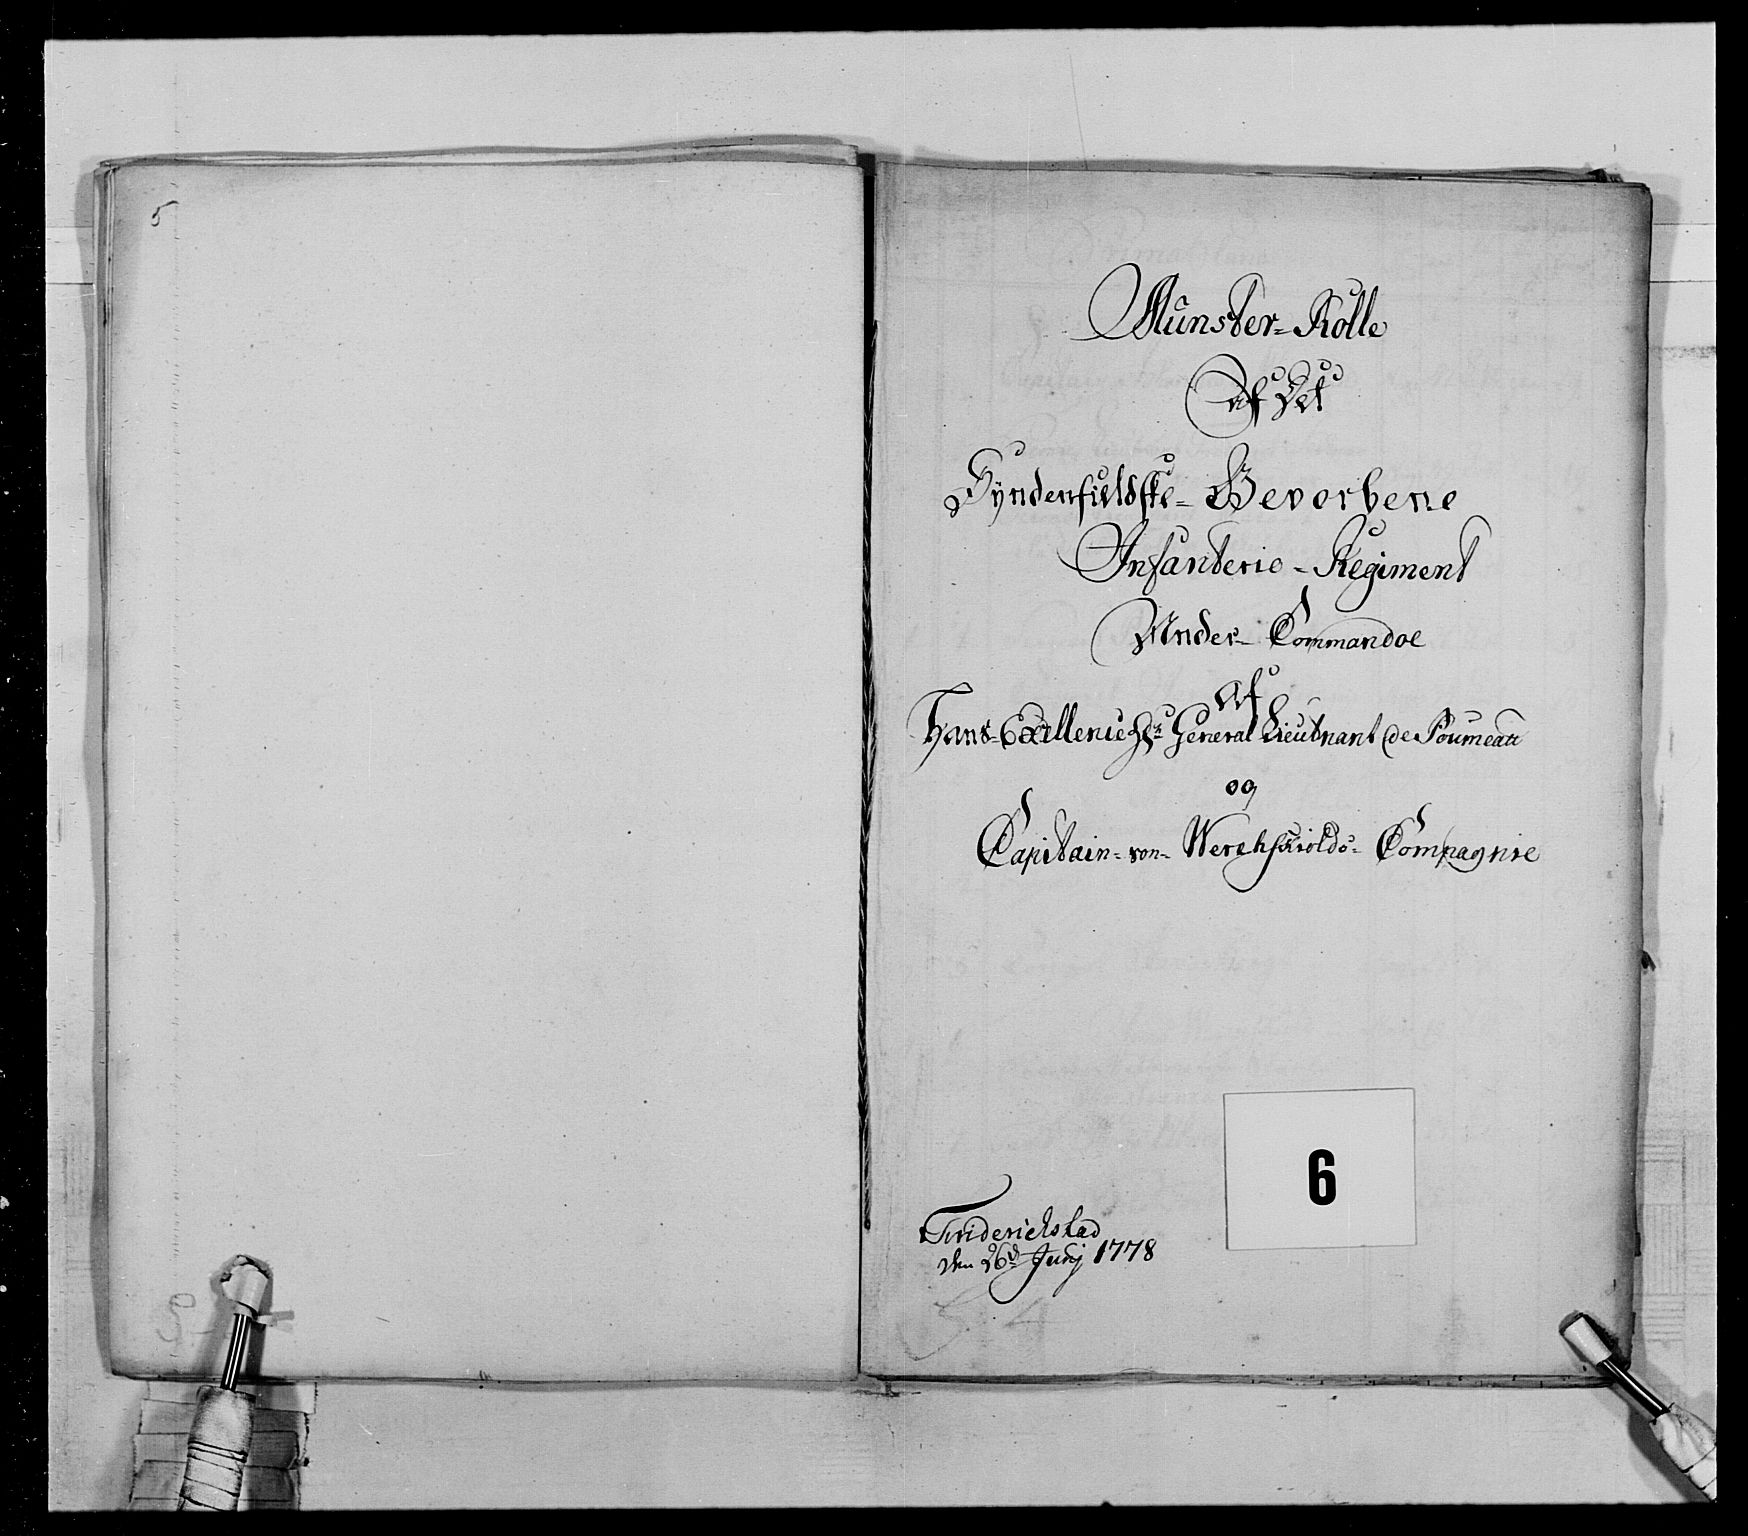 5
Munster-Rolle
Af Det
Syndenfieldske- Geworbene
Infanterie-Regiment
Under- Commandoe
Af
Hans-Excellence Hr: General Lieutnant de Poumeau
og
Capitain-von- Werchskiolds- Compagnie
6
Friderichstad
den 26d Junj 1778